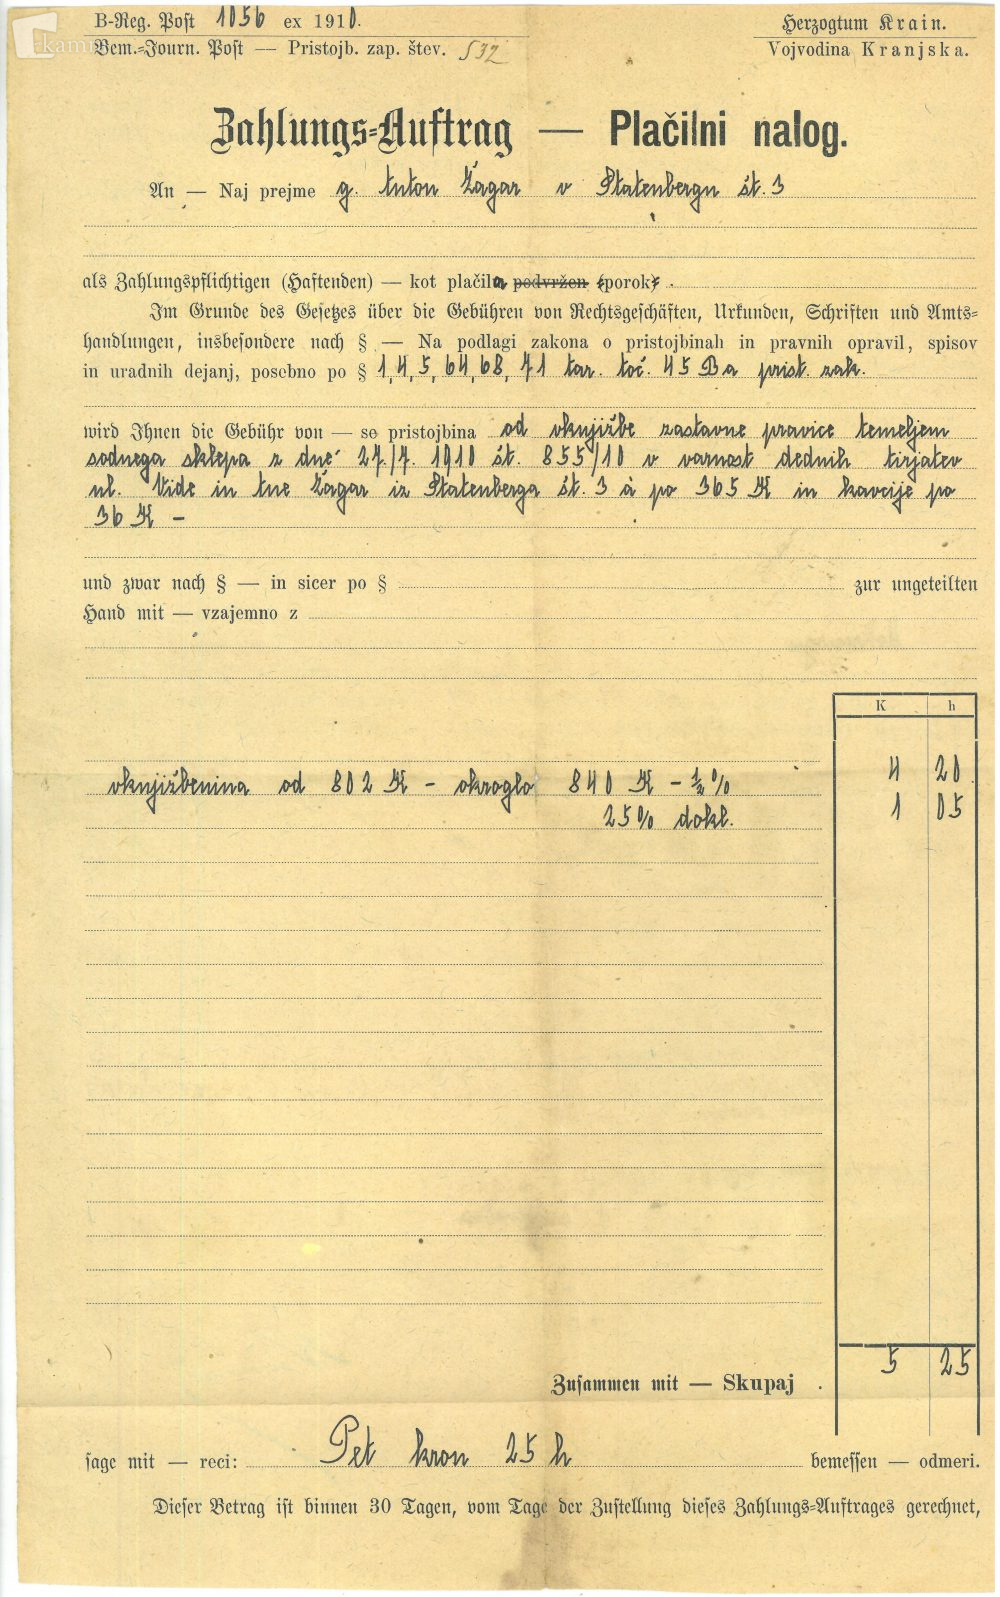 B-Reg. Post 1056 ex 1910.
Bem.-Journ. Post — Pristojb. zap. štev. 532
Herzogtum Krain.
Vojvodina Kranjska.
kam
Zahlungs-Auftrag — Plačilni nalog.
An — Naj prejme g. Anton Žagar v Statenbergu št. 3
als Zahlungspflichtigen (Haftenden) — kot plačila podvržen (porok) .
Im Grunde des Gesetzes über die Gebühren von Rechtsgeschäften, Urkunden, Schriften und Amts-
handlungen, insbesondere nach § — Na podlagi zakona o pristojbinah in pravnih opravil, spisov
in uradnih dejanj, posebno po § 1, 4, 5, 64, 68, 71 tar. toč. 45 B a prist. zak.
wird Ihnen die Gebühr von — se pristojbina od vknjižbe zastavne pravice temeljem
sodnega sklepa z dne 27./7. 1910 št. 855/10 v varnost dednih tirjatev
ul. Vide in Ane Žagar iz Statenberga št. 3 à po 365 K in kavcije po
36 K —
und zwar nach § — in sicer po § zur ungeteilten
Hand mit — vzajemno z
K h
vknjižbenina od 802 K — okroglo 840 K — ½ % 4 20
25% dokl. 1 05
5 25
Zusammen mit — Skupaj .
sage mit — reci: Pet kron 25 h bemessen — odmeri.
Dieser Betrag ist binnen 30 Tagen, vom Tage der Zustellung dieses Zahlungs-Auftrages gerechnet,